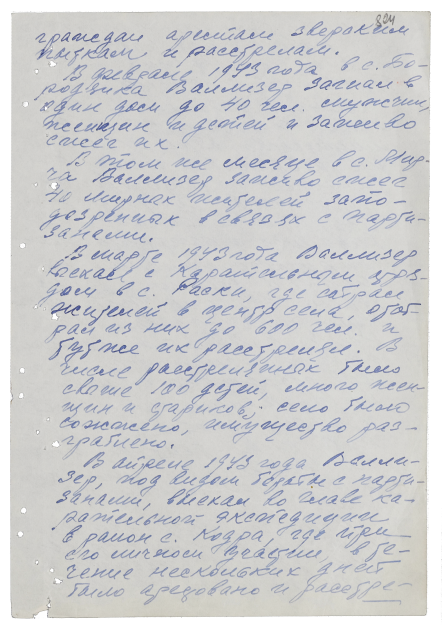 324
граждан арестам зверским
пыткам и расстрелам.
В феврале 1943 года в с. Бо-
родянка Валлизер загнал в
один дом до 40 чел. мужчин,
женщин и детей и заживо
сжег их.
В том же месяце в с.
Валлизер заживо сжег
мирных жителей запо-
дозренных в связях с парти-
занами.
В марте 1943 года Валлизер
выехал с карательным отря-
дом в с. Раски, где собрал
жителей в центр села, отоб-
рал из них до 600 чел. и
тут же их расстрелял. В
числе расстрелянных было
свыше 100 детей, много жен-
щин и стариков; село было
сожжено, имущество раз-
граблено.
В апреле 1943 года Валли-
зер, под видом борьбы с парти-
занами, выехал во главе ка-
рательной экспедиции
в район с. Кодра, где при
его личном участии, в те-
чение нескольких дней
было арестовано и расстре-